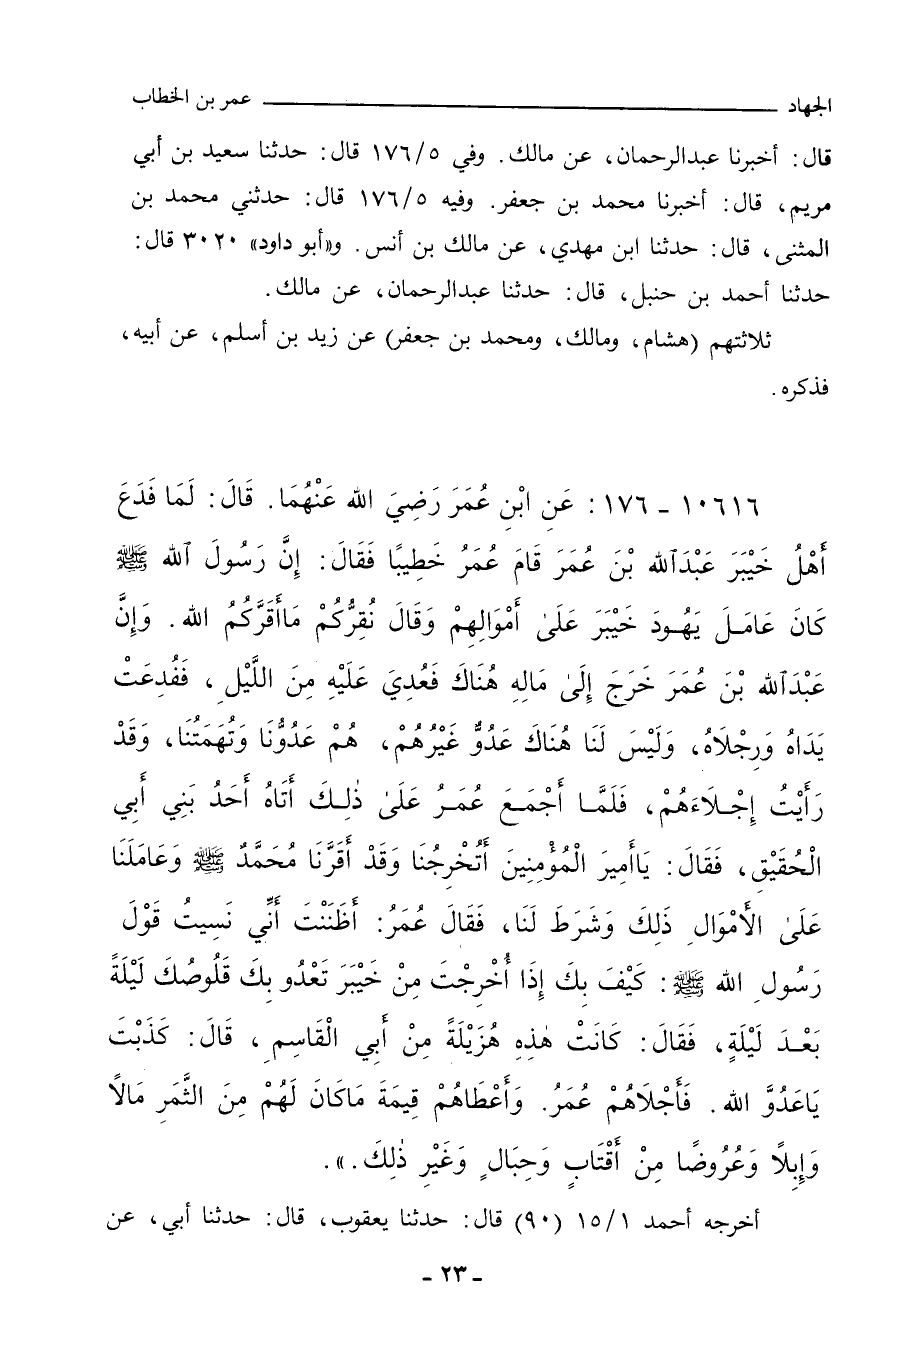 الجهاد ــــــــــــ عمر بن الخطاب
قال: أخبرنا عبدالرحمان، عن مالك. وفي ١٧٦/٥ قال: حدثنا سعيد بن أبي
مريم، قال: أخبرنا محمد بن جعفر. وفيه ١٧٦/٥ قال: حدثني محمد بن
المثنى، قال: حدثنا ابن مهدي، عن مالك بن أنس. و«أبو داود» ٣٠٢٠ قال:
حدثنا أحمد بن حنبل، قال: حدثنا عبدالرحمان، عن مالك.
ثلاثتهم (هشام، ومالك، ومحمد بن جعفر) عن زيد بن أسلم، عن أبيه،
فذكره.
١٠٦١٦ - ١٧٦: عَنِ ابْنِ عُمَرَ رَضِيَ الله عَنْهُمَا. قَالَ: لَمَا فَدَعَ
أَهْلُ خَيْبَرَ عَبْدَاللهِ بْنَ عُمَرَ قَامَ عُمَرُ خَطِيبًا فَقَالَ: إِنَّ رَسُولَ اللهِ ﷺ
كَانَ عَامَلَ يَهُودَ خَيْبَرَ عَلَىٰ أَمْوَالِهِمْ وَقَالَ نُقِرُّكُمْ مَاأَقَرَّكُمُ الله. وَإِنَّ
عَبْدَاللهِ بْنَ عُمَرَ خَرَجَ إِلَىٰ مَالِهِ هُنَاكَ فَعُدِيَ عَلَيْهِ مِنَ اللَّيْلِ، فَفُدِعَتْ
يَدَاهُ وَرِجْلَاهُ، وَلَيْسَ لَنَا هُنَاكَ عَدُوٌّ غَيْرُهُمْ، هُمْ عَدُوُّنَا وَتُهَمَتُنَا، وَقَدْ
رَأَيْتُ إِجْلَاءَهُمْ، فَلَمَّا أَجْمَعَ عُمَرُ عَلَىٰ ذٰلِكَ أَتَاهُ أَحَدُ بَنِي أَبِي
الْحُقَيْقِ، فَقَالَ: يَاأَمِيرَ الْمُؤْمِنِينَ أَتُخْرِجُنَا وَقَدْ أَقَرَّنَا مُحَمَّدٌ ﷺ وَعَامَلَنَا
عَلَىٰ الأَمْوَالِ ذَلِكَ وَشَرَطَ لَنَا، فَقَالَ عُمَرُ: أَظَنَنْتَ أَنِّي نَسِيتُ قَوْلَ
رَسُولِ الله ﷺ: كَيْفَ بِكَ إِذَا أُخْرِجْتَ مِنْ خَيْبَرَ تَعْدُو بِكَ قَلُوصُكَ لَيْلَةً
بَعْدَ لَيْلَةٍ، فَقَالَ: كَانَتْ هٰذِهِ هُزَيْلَةً مِنْ أَبِي الْقَاسِمِ، قَالَ: كَذَبْتَ
يَاعَدُوَّ اللهِ. فَأَجْلَاهُمْ عُمَرُ. وَأَعْطَاهُمْ قِيمَةَ مَاكَانَ لَهُمْ مِنَ الثَّمَرِ مَالًا
وَإِبِلًا وَعُرُوضًا مِنْ أَقْتَابٍ وَحِبَالٍ وَغَيْرِ ذٰلِكَ.».
أخرجه أحمد ١٥/١ (٩٠) قال: حدثنا يعقوب، قال: حدثنا أبي، عن
- ٢٣ -